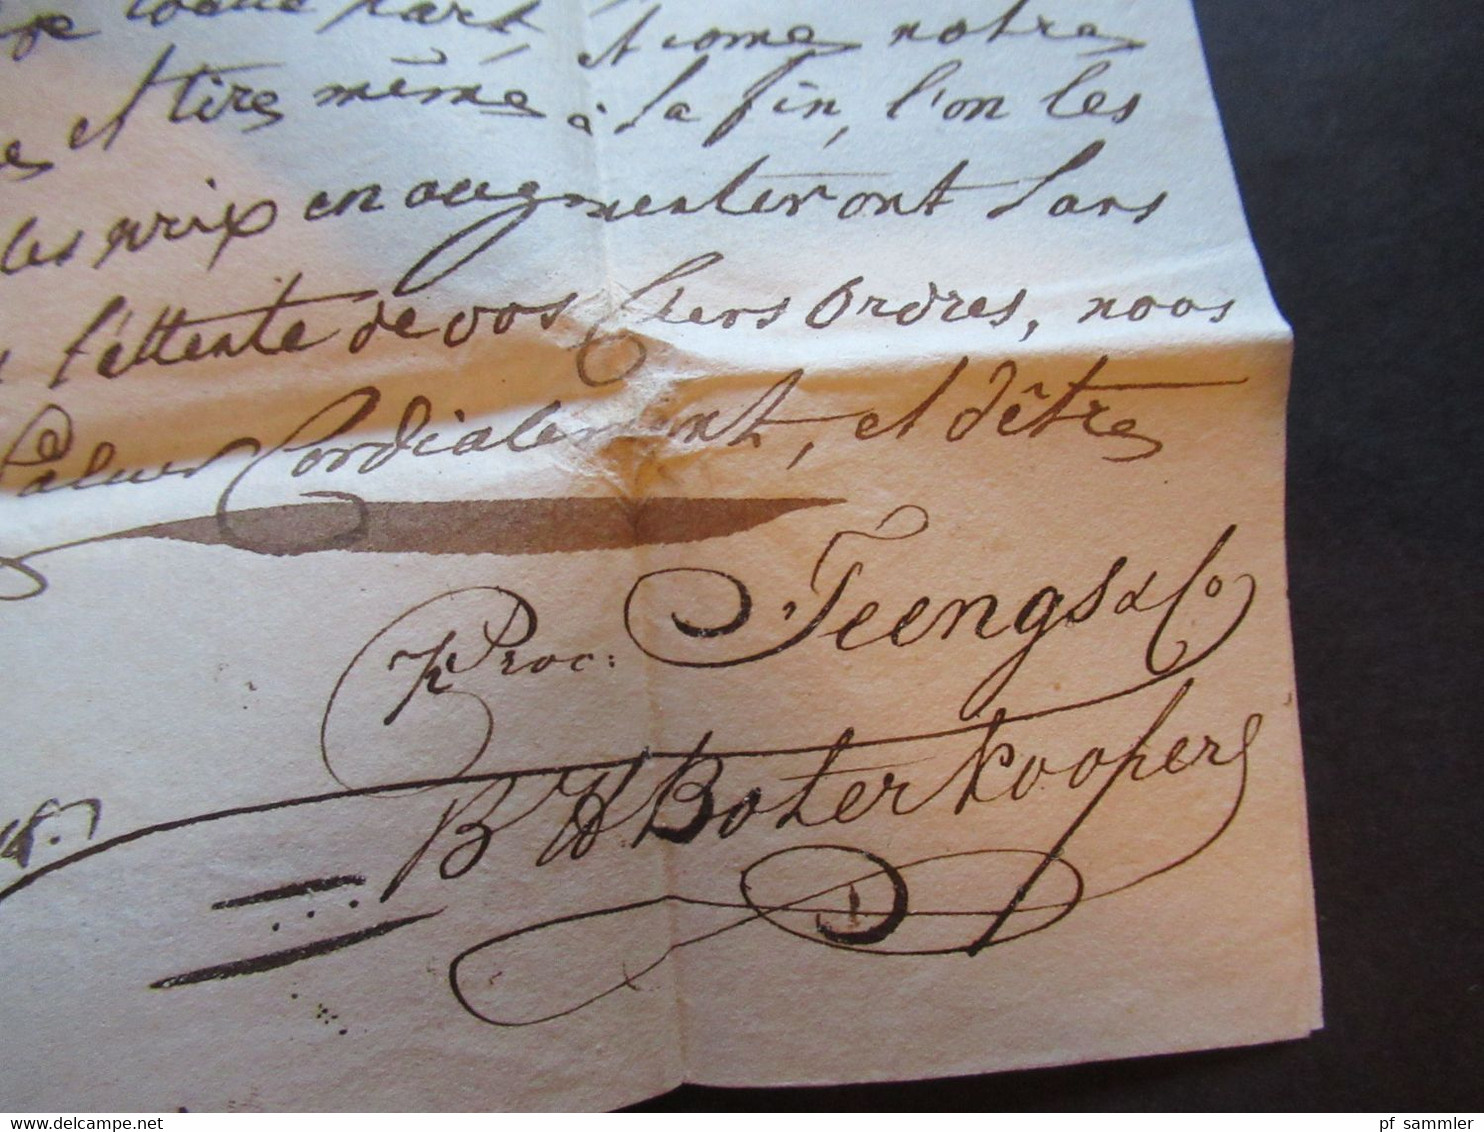 part, et come notre
et tire même à la fin, l'on les
les prix en augmenteront sans
l'attente de vos Chers Ordres, nous
Saluer Cordialement, et d'être
Pr Proc: Teengs & Co
B W Boterkooper
www.delcampe.net
pf_sammler